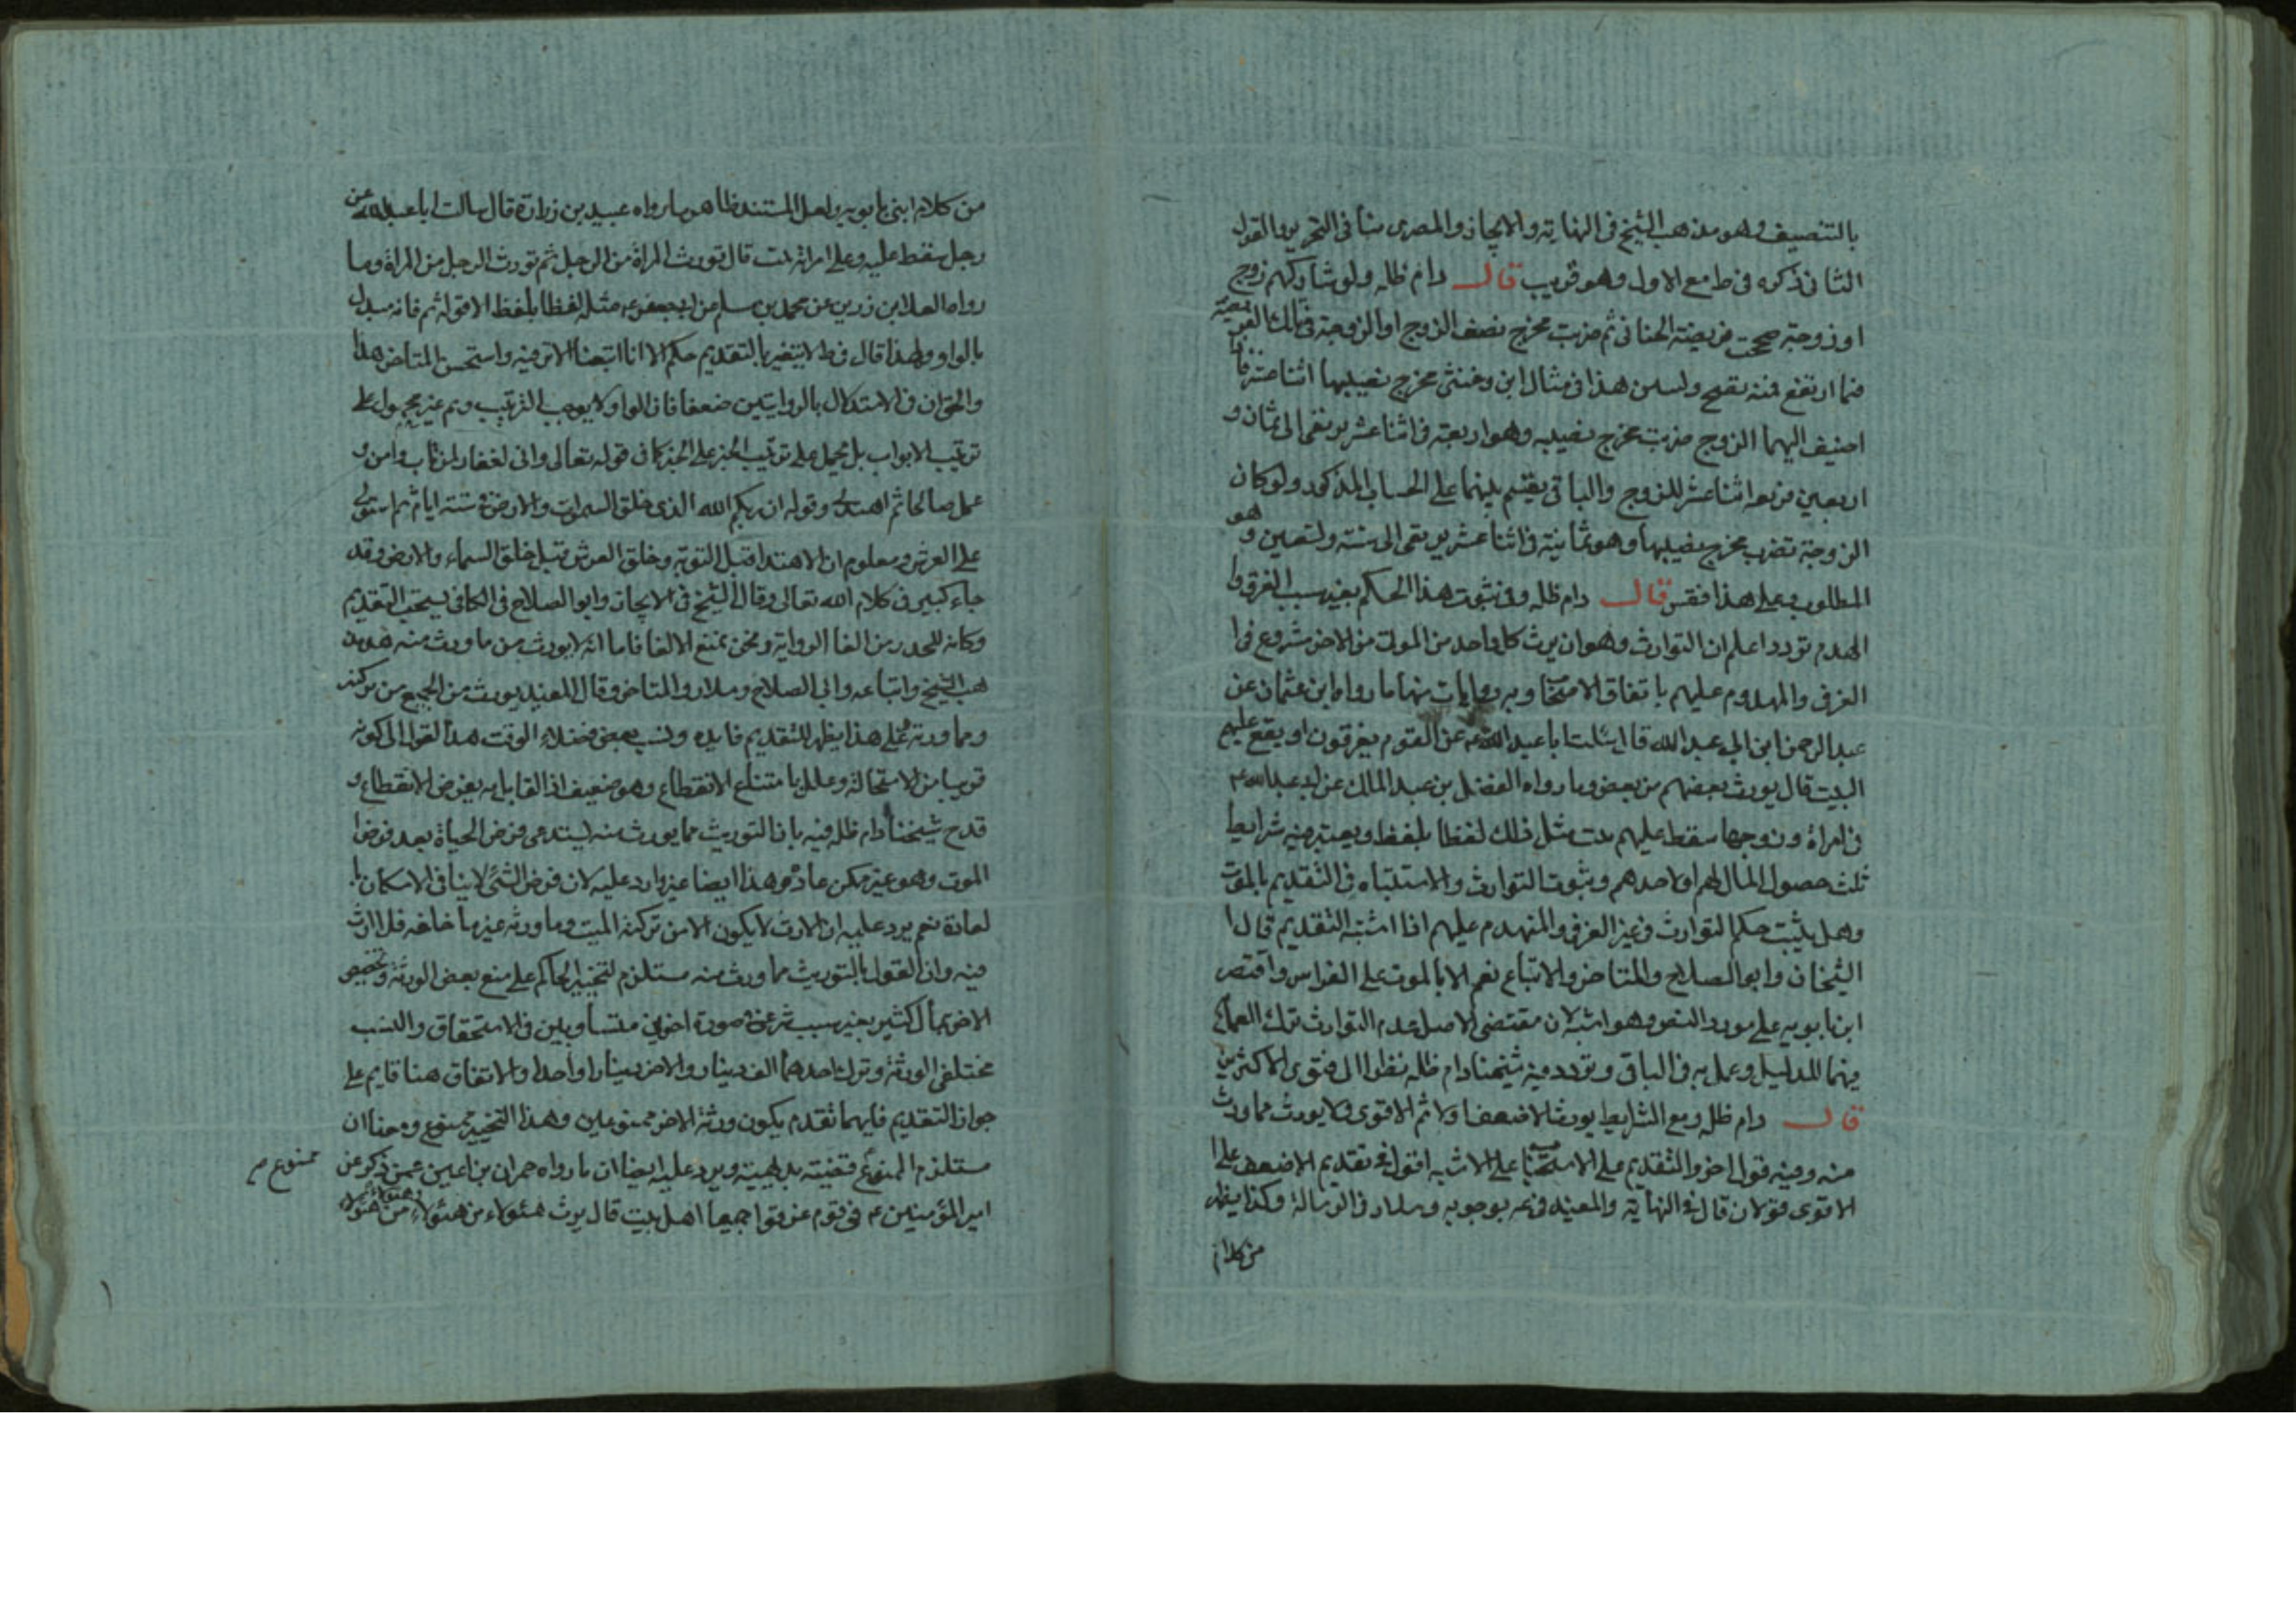 بالتنصيف وهو مذهب الشيخ فى النهاية والايجاز والمصرى منا فى التحرير والقول
الثانى ذكره فى ط مع الاول وهو قريب قال دام ظله ولو شاركهم زوج
او زوجة صححت فريضة الخناثى ثم ضربت مخرج نصف الزوج او الزوجة فى تلك الفريضة
فما ارتفع فمنه تصح ولسن هذا فى مثال ابن وخنثى مخرج نصيبهما اثنا عشر فاذا
اضيف اليهما الزوج ضربت مخرج نصيبه وهو اربعة فى اثنا عشر يرتقى الى ثمان و
اربعين فربعه اثنا عشر للزوج والباقى يقسم بينهما على الحساب المذكور ولو كان
الزوجة تضرب مخرج نصيبها وهو ثمانية فى اثنا عشر يرتقى الى ستة وتسعين وهو
المطلوب وعلى هذا فقس قال دام ظله وفى ثبوت هذا الحكم بغير سبب الغرق وا
لهدم تردد اعلم ان التوارث وهو ان يرث كل واحد من الموتى من الاخر مشروع فى ا
الغرقى والمهدوم عليهم باتفاق الاصحاب وبه روايات منها ما رواه ابن عثمان عن
عبد الرحمن ابن ابى عبد الله قال سئلت ابا عبد الله ع عن القوم يغرقون او يقع عليهم
البيت قال يورث بعضهم من بعض وما رواه الفضل بن عبد المالك عن ابى عبد الله ع
فى امراة وزوجها سقط عليهم بيت مثل ذلك لفظا بلفظ ويعتبر فيه شرايط
ثلث حصول المال لهم او لاحدهم وثبوت التوارث والاشتباه فى التقديم بالموت
وهل يثبت حكم التوارث فى غير الغرقى والمنهدم عليهم اذا اشتبه التقديم قال ا
الشيخان وابو الصلاح والمتاخر والاتباع نعم الا بالموت على الفراس واقتصر
ابن بابويه على مورد النص وهو اشبه لان مقتضى الاصل عدم التوارث ترك العمل
فيهما للدليل وعمل به فى الباقى وتردد فيه شيخنا دام ظله نظرا الى فتوى الاكثرين
قال دام ظله ومع الشرايط يورث الاضعف اولا ثم الاقوى ولا يورث مما ورث
منه وفيه قول اخر والتقديم على الاستحباب على الاشبه اقول فى تقديم الاضعف على ا
الاقوى قولان قال فى النهاية والمفيد فى عه بوجوبه وسلار فى الرسالة وكذا يظهر
من كلام
من كلام ابنى بابويه ولعل المستند ظاهر ما رواه عبيد بن زرارة قال سالت ابا عبد الله ع عن
رجل سقط عليه وعلى امراته بيت قال تورث المراة من الرجل ثم تورث الرجل من المراة وما
رواه العلا ابن زرين عن محمد بن مسلم عن ابى جعفر ع مثله لفظا بلفظ الا قوله ثم فانه مبدل
بالواو ولهذا قال فى ط لا يتغير بالتقديم حكم الا انا اتبعنا الاثر فيه واستحسن المتاخر هذا
والحق ان فى الاستدلال بالروايتين ضعفا فان الواو لا يوجب الترتيب وثم غير محمول على
ترتيب الابواب بل يحمل على ترتيب الخبر على الخبر كما فى قوله تعالى وانى لغفار لمن تاب وامن و
عمل صالحا ثم اهتدى وقوله ان ربكم الله الذى خلق السموات والارض فى ستة ايام ثم استوى
على العرش ومعلوم ان الاهتدا قبل التوبة وخلق العرش قبل خلق السماء والارض وقد
جاء كبير فى كلام الله تعالى وقال الشيخ فى الايجاز وابو الصلاح فى الكافى يستحب التقديم
وكانه للحذر من الغا الرواية ونحن نمنع الالغا فاما انه لا يورث من ما ورث منه فمذ
هب الشيخ واتباعه وابى الصلاح وسلار والمتاخر وقال المفيد يورث من الجميع من تركته
ومما ورثه فعلى هذا يظهر للتقديم فايدة ونسب بعض فضلاء الوقت هذا القول الى كونه
قريبا من الاستحالة وعلله بامتناع الانقطاع وهو ضعيف اذ القايل به يفرض الانقطاع و
قدح شيخنا دام ظله فيه بان التوريث مما يورث منه يستدعى فرض الحياة بعد فرض ا
الموت وهو غير ممكن عادة وهذا ايضا غير وارد عليه لان فرض الشئ لا ينافى الامكان با
لعادة نعم يرد عليه ان الارث لا يكون الا من تركة الميت وما ورثه غير ما خلفه فلا ارث
فيه وان القول بالتوريث مما ورث منه مستلزم لتخيير الحاكم على منع بعض الورثة وتخصيص
الاخر بمال كثير بغير سبب شرعى فى صورة اخوين متساويين فى الاستحقاق والنسب
مختلفى الورثة وترك احدهما الف دينار والاخر دينارا واحدا والاتفاق هنا قايم على
جواز التقديم فايهما تقدم يكون ورثة الاخر ممنوعين وهذا التخيير ممنوع ومعنا ان
مستلزم الممنوع قضية بديهية ويرد عليه ايضا ان ما رواه حمران بن اعين عمن ذكره عن
ممنوع م
امير المؤمنين ع فى قوم غرقوا جميعا اهل بيت قال يرث هئولاء من هئولاء وهئولاء من هئولاء